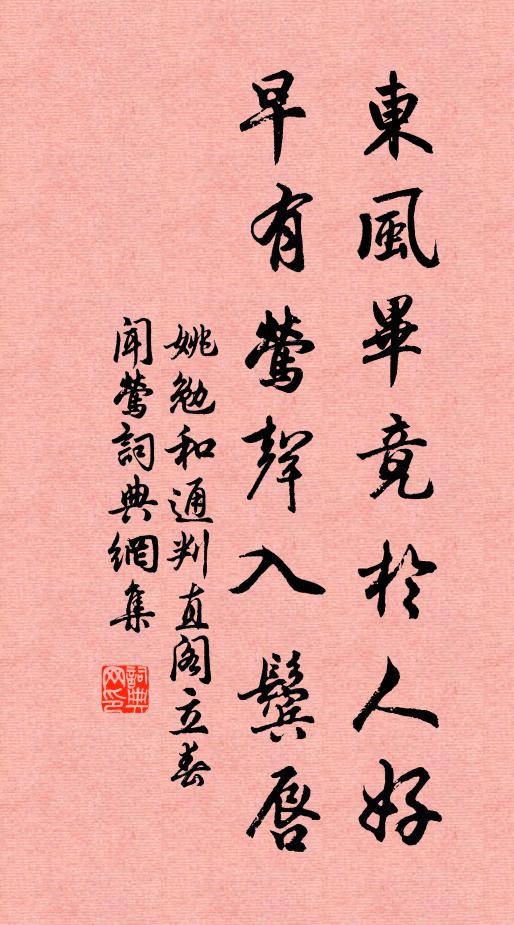 東風畢竟於人好
早有鶯聲入鬢唇
姚勉和通判直閣立春
聞鶯詞典網集
詞典
网印